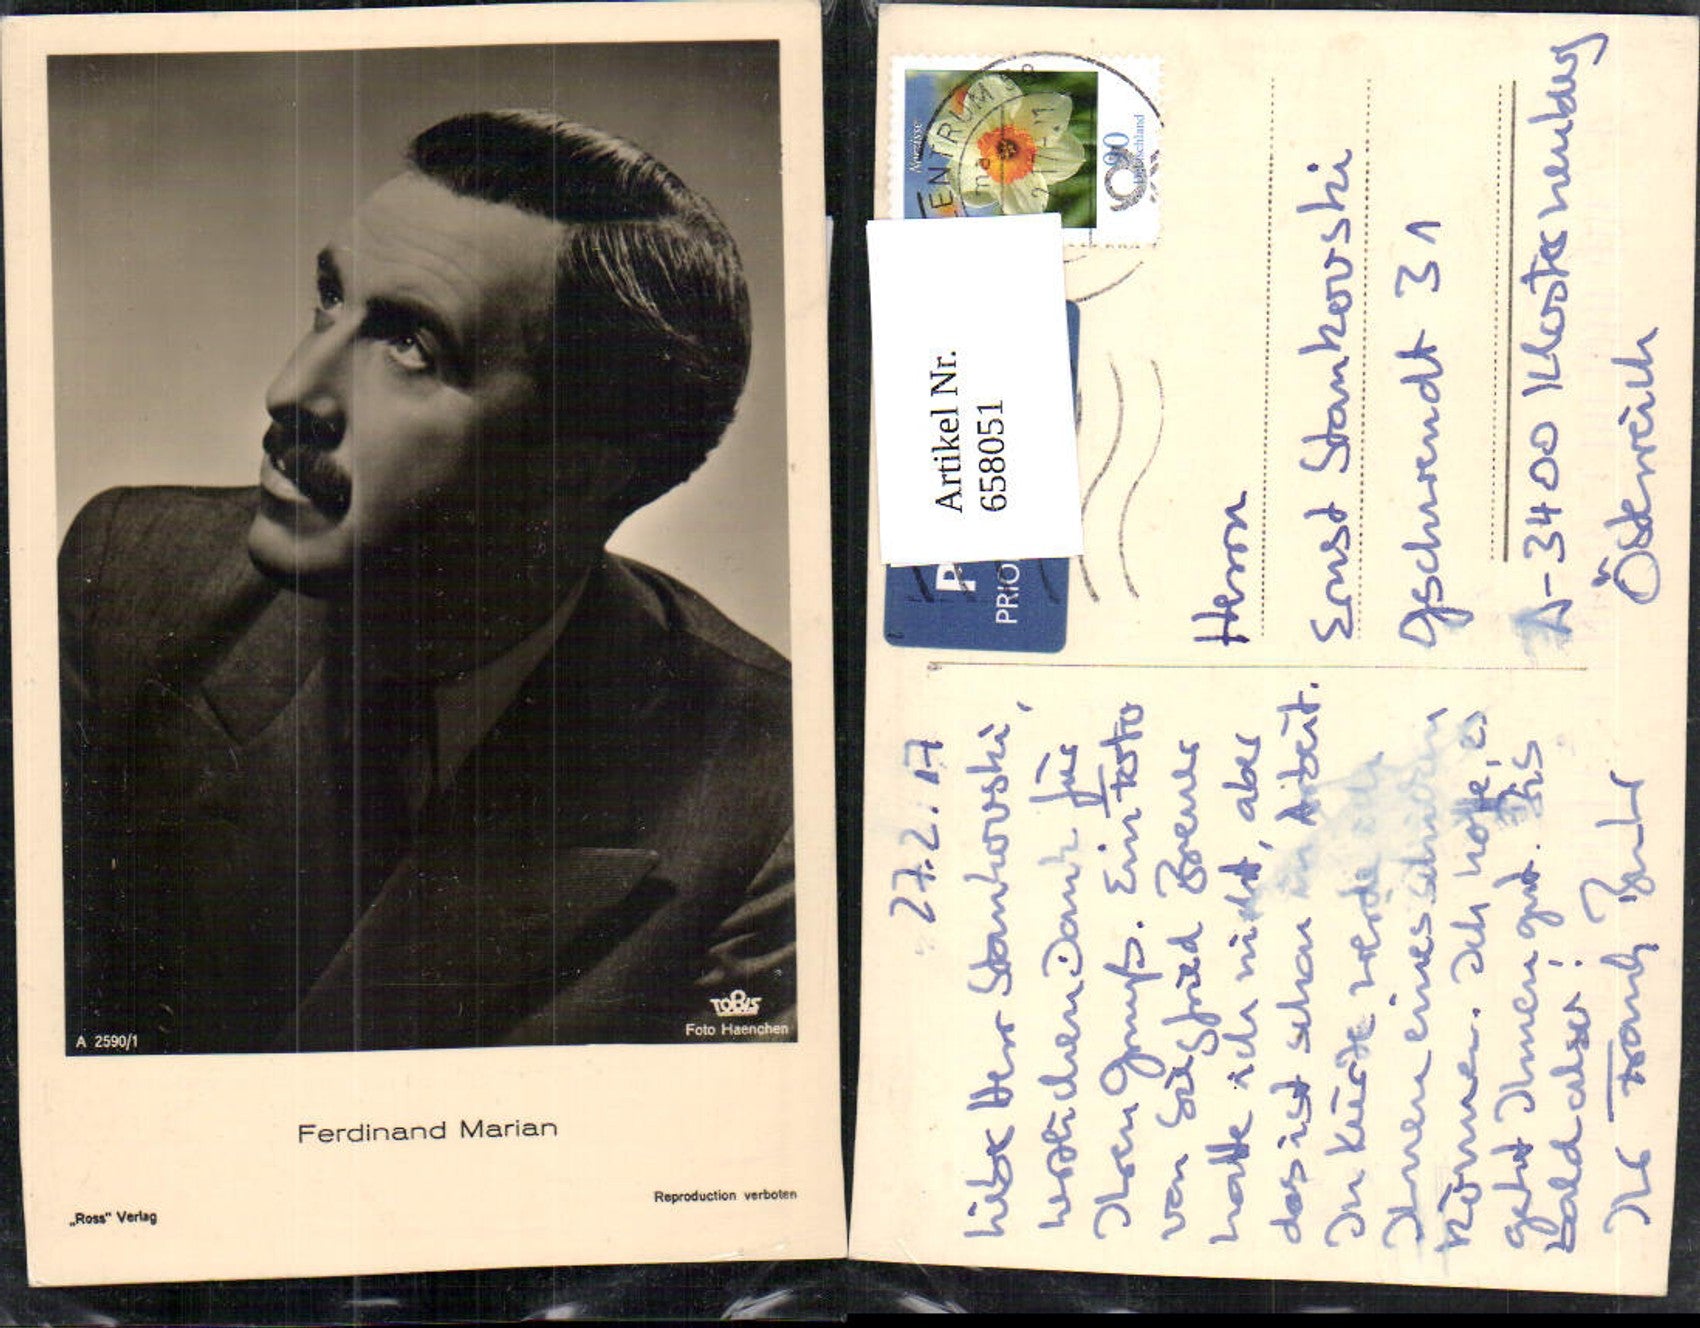 TOBIS
Foto Haenchen
A 2590/1
Ferdinand Marian
Reproduction verboten
„Ross" Verlag
Narzisse
90
Deutschland
ENTRUM
Artikel Nr.
658051
P
PRIO
Herrn
Ernst Stankovski
Gschwendt 31
A-3400 Klosterneuburg
Österreich
27.2.17
Lieber Herr Stankovski,
herzlichen Dank für
Ihren Gruß. Ein Foto
von Siegfried Breuer
hatte ich nicht, aber
das ist schon in Arbeit.
In Kürze werde ich
Ihnen eines schicken
können. Ich hoffe, es
geht Ihnen gut. Bis
bald also!
Ihr